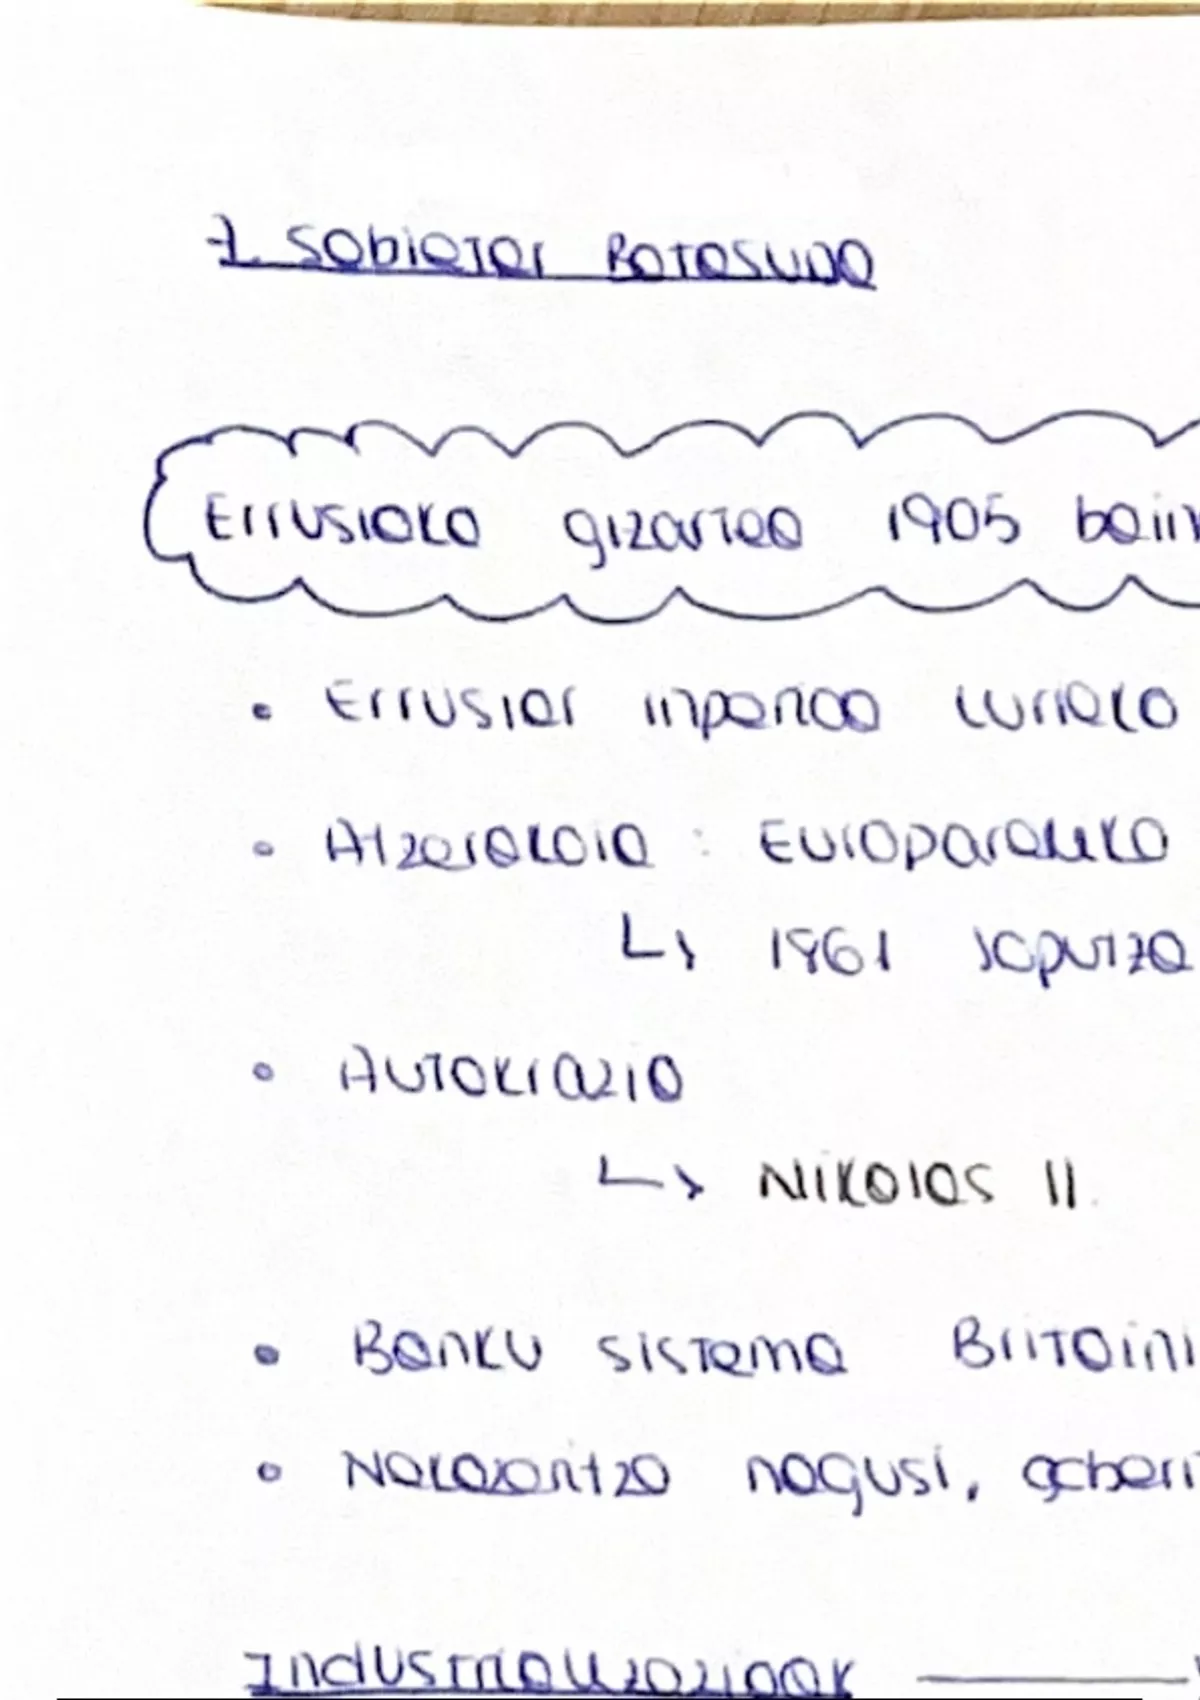 1. Sobietar Batasuna
Errusiako gizartea 1905 bain
• Errusiar inperioa lurrako
• Atzerakoia : Europarekiko
↳ 1861 joputza
• Autokrazio
↳ Nikolas II.
• Banku sistema Britaini
• Nekazaritza nagusi,
Industrializazioak